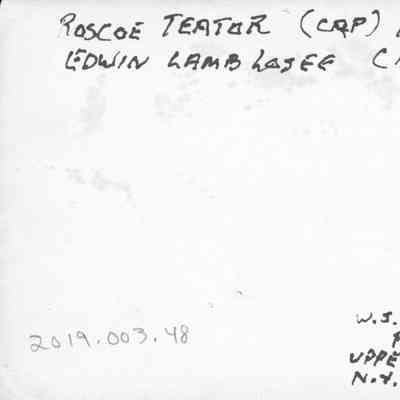 ROSCOE TEATOR (CAP)
EDWIN LAMB LOSEE (
W.S.
2019.003.48
UPPE
N.Y.